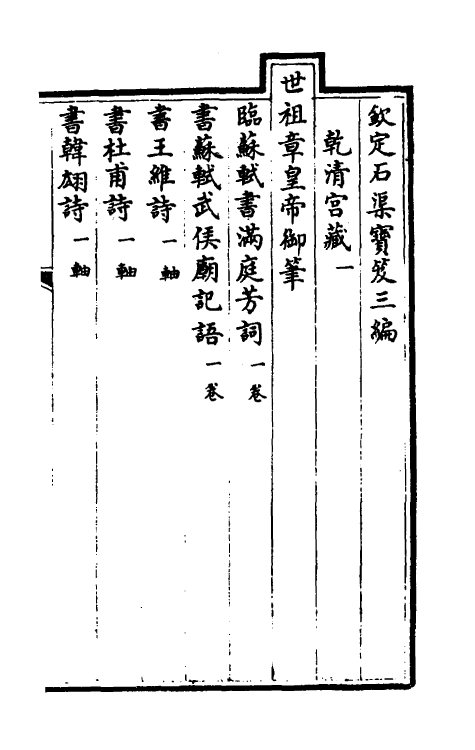 欽定石渠寶笈三編
乾清宮藏一
世祖章皇帝御筆
臨蘇軾書滿庭芳詞一卷
書蘇軾武侯廟記語一卷
書王維詩一軸
書杜甫詩一軸
書韓翃詩一軸